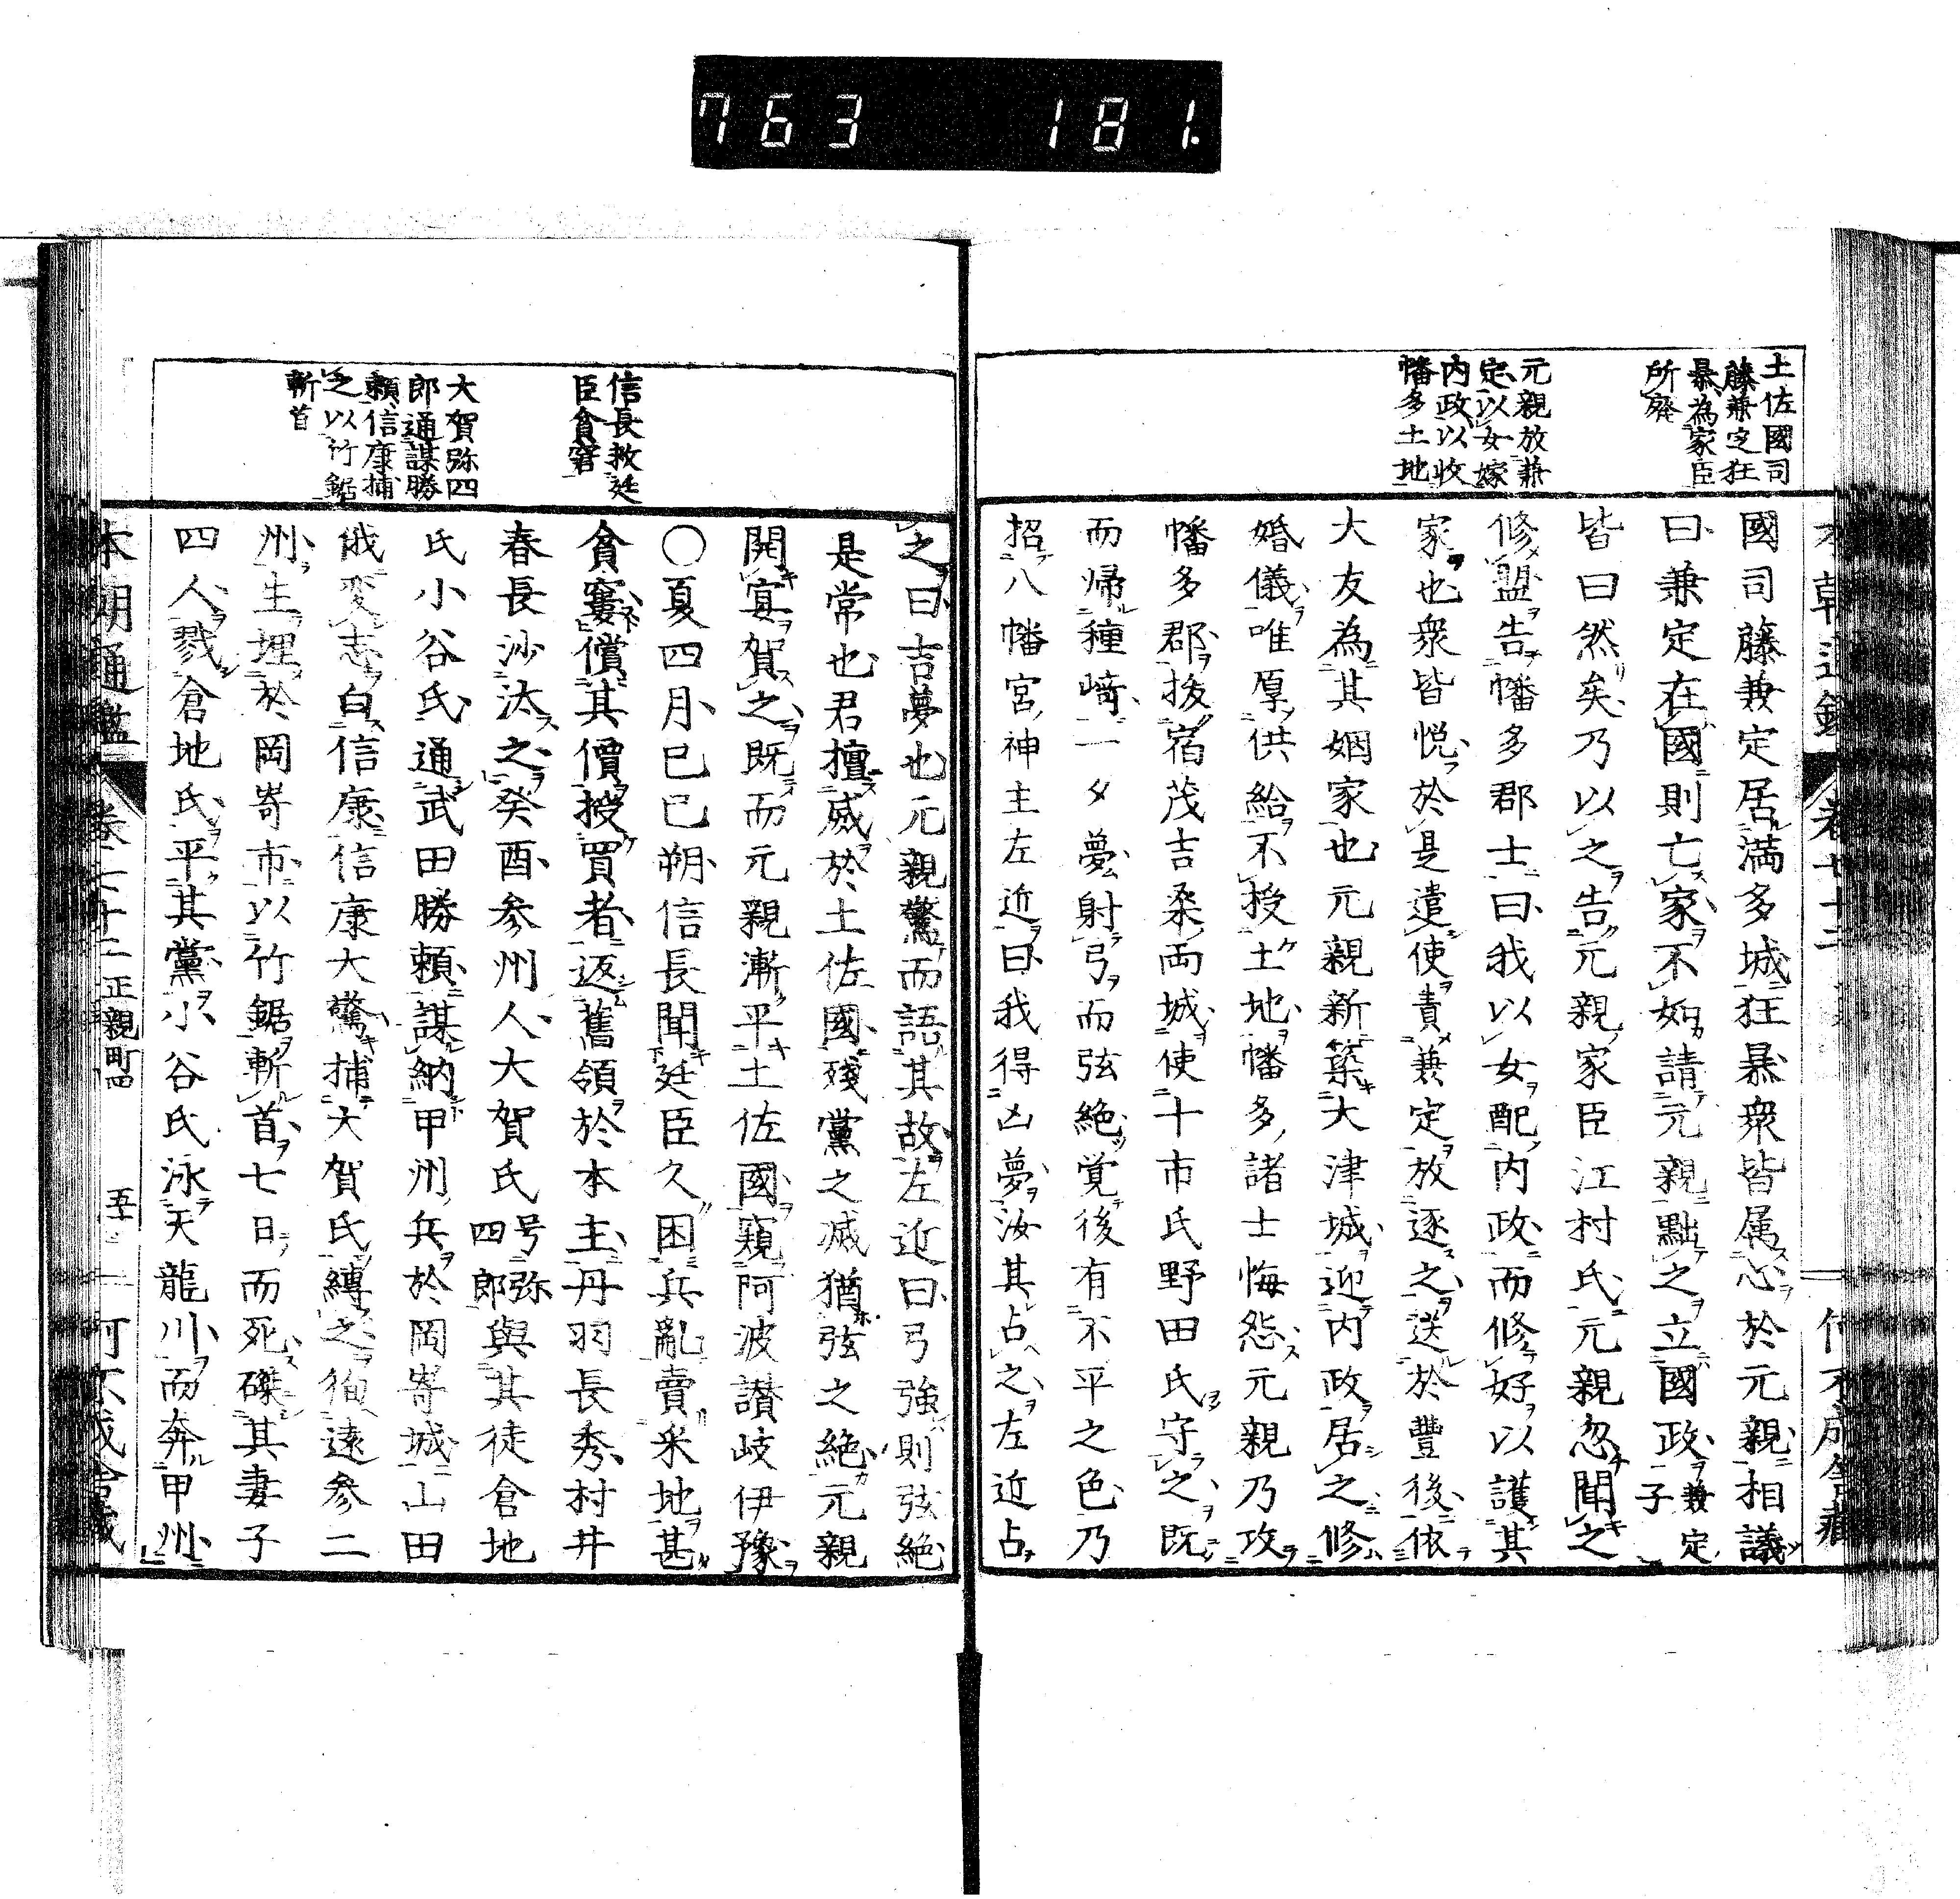 763 181.
土佐國司
藤兼定狂
暴為家臣
所廢
元親放兼
定以女嫁
内政以收
幡多土地
國司藤兼定居満多城狂暴衆皆属心於元親相議
曰兼定在國則亡家不如請元親黜之立國政兼定子
皆曰然矣乃以之告元親家臣江村氏元親忽聞之
修盟告幡多郡士曰我以女配内政而修好以護其
家也衆皆悦於是遣使責兼定放逐之送於豐後依
大友為其姻家也元親新築大津城迎内政居之修
婚儀唯厚供給不授土地幡多諸士悔怨元親乃攻
幡多郡抜宿茂吉桑両城使十市氏野田氏守之既
而帰種﨑一夕夢射弓而弦絶覚後有不平之色乃
招八幡宮神主左近曰我得凶夢汝其占之左近占
信長救廷
臣貪窘
大賀弥四
郎通謀勝
頼信康捕
之以竹鋸
斬首
之曰吉夢也元親驚而語其故左近曰弓強則弦絶
是常也君擅威於土佐國殘黨之滅猶弦之絶元親
開宴賀之既而元親漸平土佐國窺阿波讃岐伊豫
〇夏四月己巳朔信長聞廷臣久困兵亂賣采地甚
貪窶償其價授買者返舊領於本主丹羽長秀村井
春長沙汰之癸酉参州人大賀氏号弥四郎與其徒倉地
氏小谷氏通武田勝頼謀納甲州兵於岡嵜城山田
俄変志白信康信康大驚捕大賀氏縛之徇遠参二
州生埋於岡嵜市以竹鋸斬首七日而死磔其妻子
四人戮倉地氏平其黨小谷氏泳天龍川而奔甲州
本朝通鑑 卷七十二 正親町四 五 竹不成舎藏